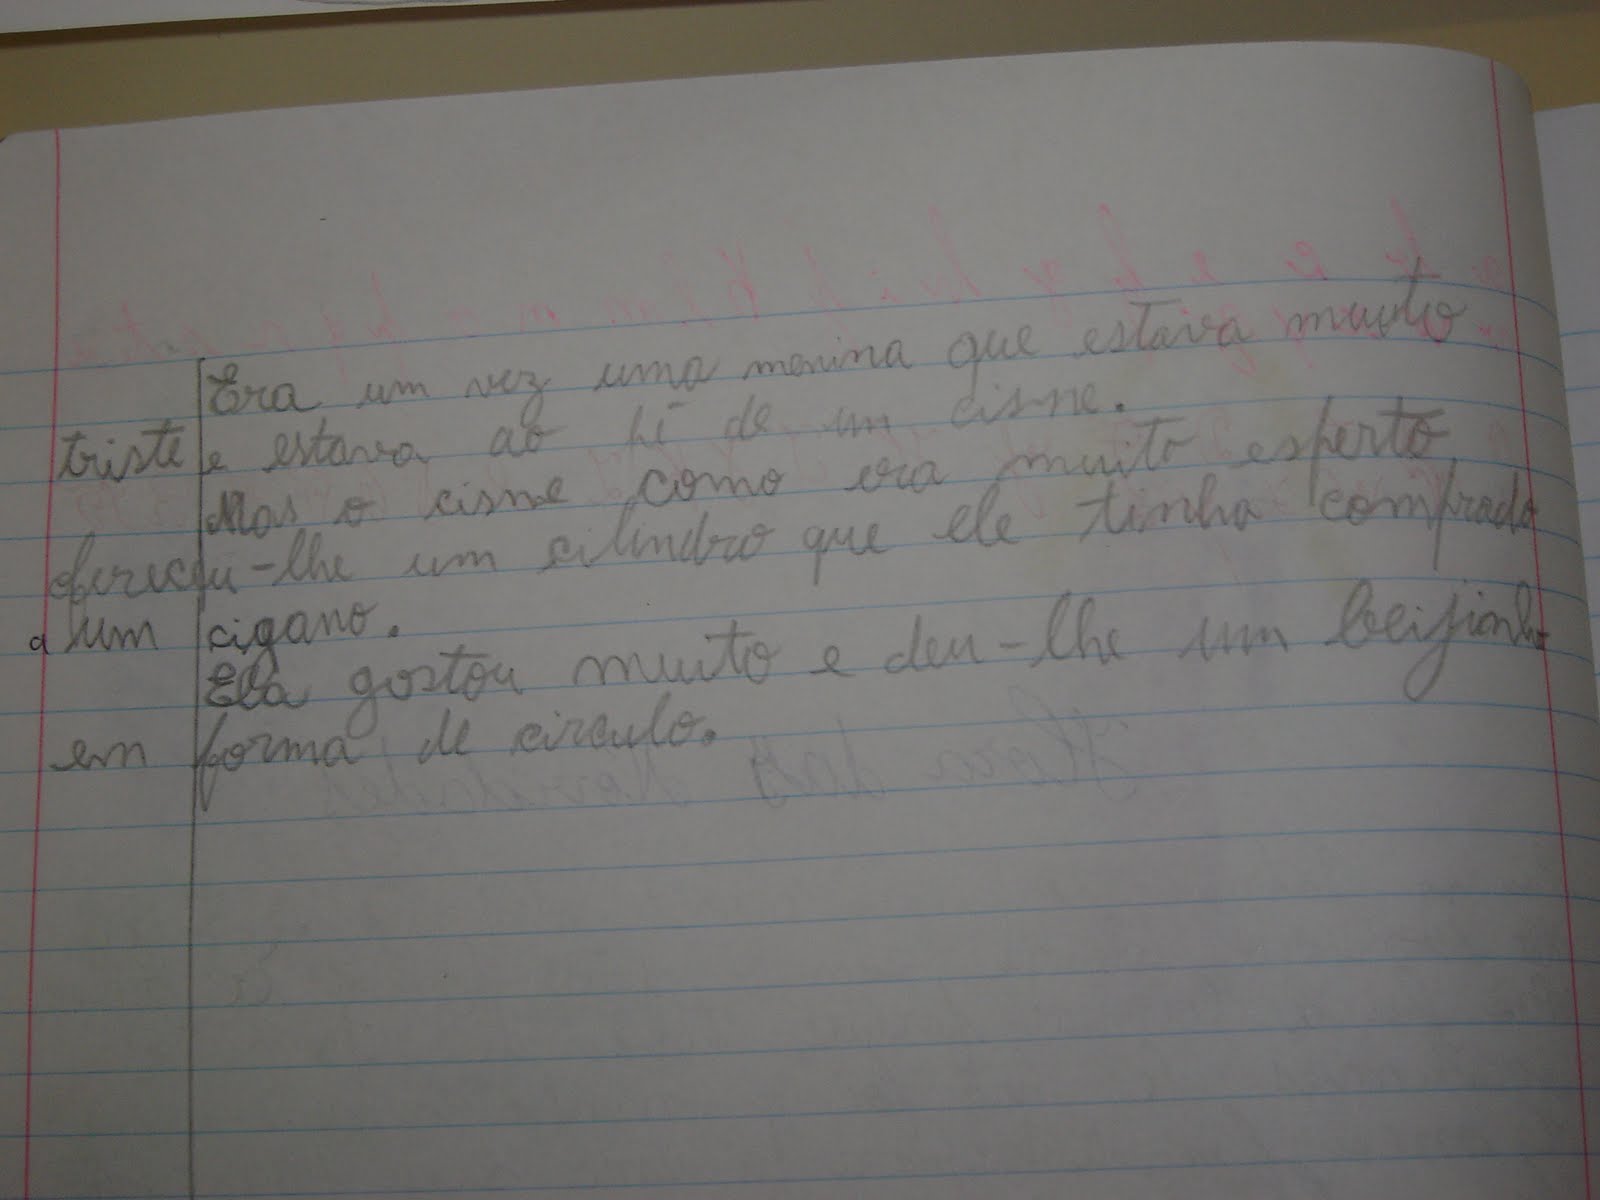 Era um vez uma menina que estava muito
triste e estava ao pé de um cisne.
Mas o cisne como era muito esperto
ofereceu-lhe um cilindro que ele tinha comprado
a um cigano.
Ela gostou muito e deu-lhe um beijinho
em forma de circulo.